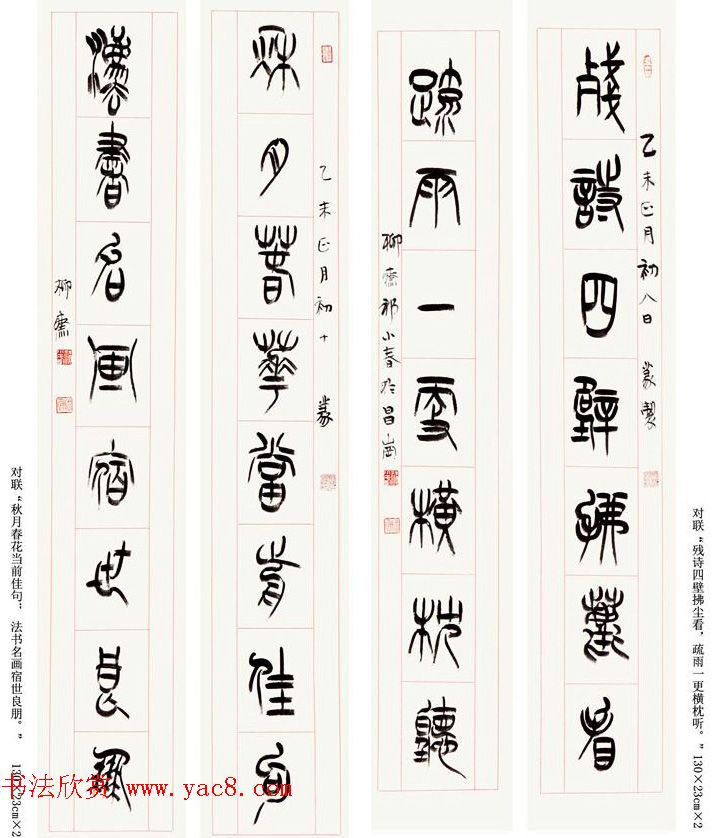 对联“残诗四壁拂尘看，疏雨一更横枕听。” 130×23cm×2
乙未正月初八日 篆製
殘詩四壁拂塵看
疏雨一更橫枕聽
柳齋祁小春於昌崗
乙未正月初十 篆
秋月春華當前佳句
灋書名畫宿世良朋
柳齋
对联“秋月春花当前佳句；法书名画宿世良朋。” 130×23cm×2
书法欣赏 www.yac8.com